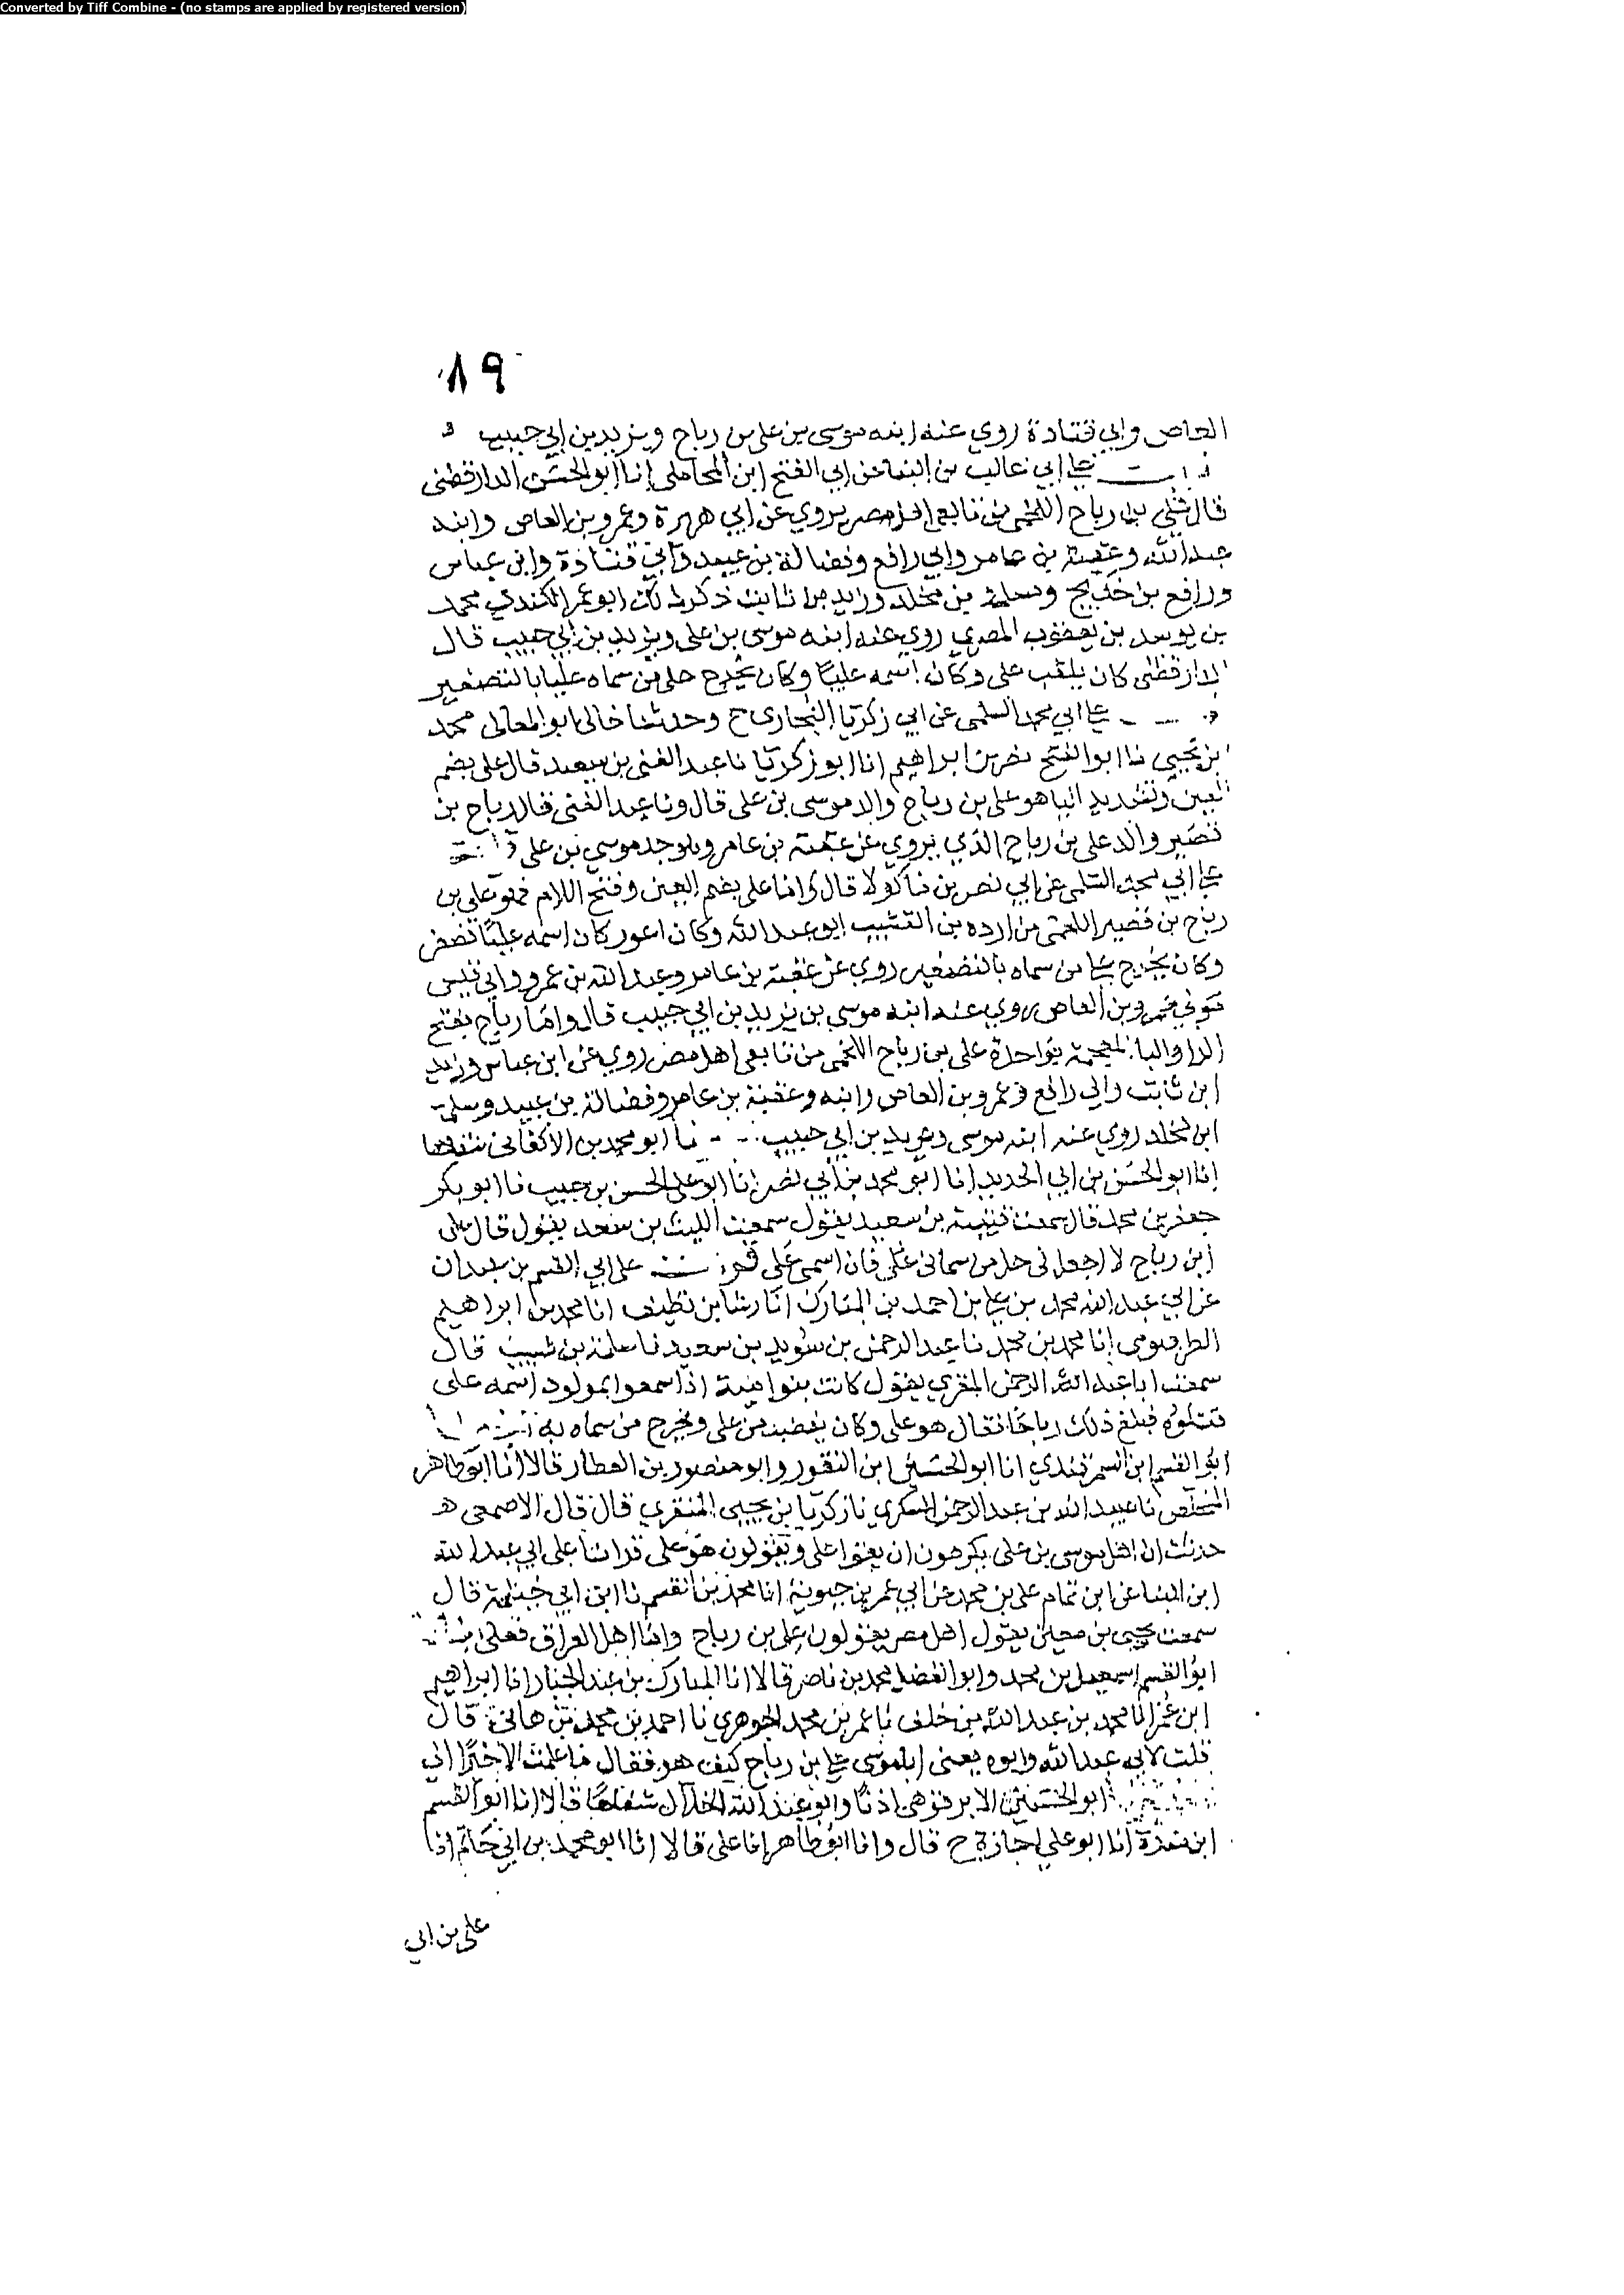 Converted by Tiff Combine - (no stamps are applied by registered version)
١٩
العاص وابي قتادة روي عنه ابنه موسى بن على بن رباح ويزيد بن ابي حبيب
على ابي غالب بن البنا عن ابي الفتح ابن المحاملى انا ابو الحسن الدارقطنى
قال على بن رباح اللخمى من تابعى اهل مصر يروي عن ابي هريرة وعمرو بن العاص وابنه
عبد الله وعقبة بن عامر وابي رافع وفضالة بن عبيد وابي قتادة وابن عباس
ورافع بن خديج ومسلمة بن مخلد وزيد بن ثابت ذكر ذلك ابو عمر الكندي محمد
بن يوسف بن يعقوب المصري روي عنه ابنه موسى بن على ويزيد بن ابي حبيب قال
الدارقطنى كان يلقب على وكان اسمه عليا وكان يحرج على من سماه عليا بالتصغير
على ابي محمد السلمى عن ابي زكريا البخارى ح وحدثنا خالى ابو المعالى محمد
بن يحيى نا ابو الفتح نصر بن ابراهيم انا ابو زكريا نا عبد الغنى بن سعيد قال على بضم
العين وتشديد اليا هو على بن رباح والد موسى بن على قال ونا عبد الغنى قال رباح بن
قصير والد على بن رباح الذي يروي عن عقبة بن عامر وهو جد موسى بن على
على ابي محمد السلمى عن ابي نصر بن ماكولا قال واما على بضم العين وفتح اللام فهو على بن
رباح بن قصير اللخمى من ارده بن القشيب ابو عبد الله وكان اعور كان اسمه عليا فصغر
وكان يحرج على من سماه بالتصغير روي عن عقبة بن عامر وعبد الله بن عمرو وابي قيس
مولي عمرو بن العاص روي عنه ابنه موسى بن يزيد بن ابي حبيب قال واما رباح بفتح
الرا والبا المعجمة بواحدة على بن رباح اللخمى من تابعى اهل مصر روي عن ابن عباس وزيد
ابن ثابت وابي رافع وعمرو بن العاص وابنه وعقبة بن عامر وفضالة بن عبيد ومسلمة
ابن مخلد روي عنه ابنه موسى ويزيد بن ابي حبيب نا ابو محمد بن الاكفانى شفاها
انا ابو الحسن بن ابي الحديد انا ابو محمد بن ابي نصر انا ابو على الحسن بن حبيب نا ابو بكر
جعفر بن محمد قال سمعت قتيبة بن سعيد يقول سمعت الليث بن سعد يقول قال على
ابن رباح لا اجعل فى حل من سمانى على فان اسمى على قرات على ابي القسم بن عبدان
عن ابي عبد الله محمد بن على بن احمد بن المبارك انا رشا بن نظيف انا محمد بن ابراهيم
الطرسوسى انا محمد بن محمد نا عبد الرحمن بن سويد بن سعيد نا سلمة بن شبيب قال
سمعت ابا عبد الله الرحمن المقري يقول كانت بنو امية اذا سمعوا بمولود اسمه على
قتلوه فبلغ ذلك رباحا فقال هو على وكان يغضب من على ويحرج من سماه به
ابو القسم ابن السمرقندي انا ابو الحسين ابن النقور وابو منصور بن العطار قالا انا ابو طاهر
المخلص نا عبيد الله بن عبد الرحمن السكري نا زكريا بن يحيى المنقري قال قال الاصمعى
حدثت ان اهل موسى بن على يكرهون ان يقولوا على ويقولون هو على قراتنا على ابي عبد الله
ابن البنا عن ابن تمام على بن محمد عن ابي عمر بن حيوية انا محمد بن القسم نا ابن ابي خيثمة قال
سمعت يحيى بن معين يقول اهل مصر يقولون على بن رباح واما اهل العراق فعلى
ابو القسم اسمعيل بن محمد وابو الفضل محمد بن ناصر قالا انا المبارك بن عبد الجبار انا ابراهيم
ابن عمر انا محمد بن عبد الله بن خلف نا عمر بن محمد الجوهري نا احمد بن محمد بن هانئ قال
قلت لابي عبد الله وابوه يعنى ابا موسى على بن رباح كيف هو فقال ما علمت الا خيرا
ابو الحسين الابرقوهى اذنا وابو عبد الله الخلال شفاها قالا انا ابو القسم
ابن مندة انا ابو علي اجازة ح قال وانا ابو طاهر انا على قالا انا ابو محمد بن ابي حاتم انا
على بن ابي